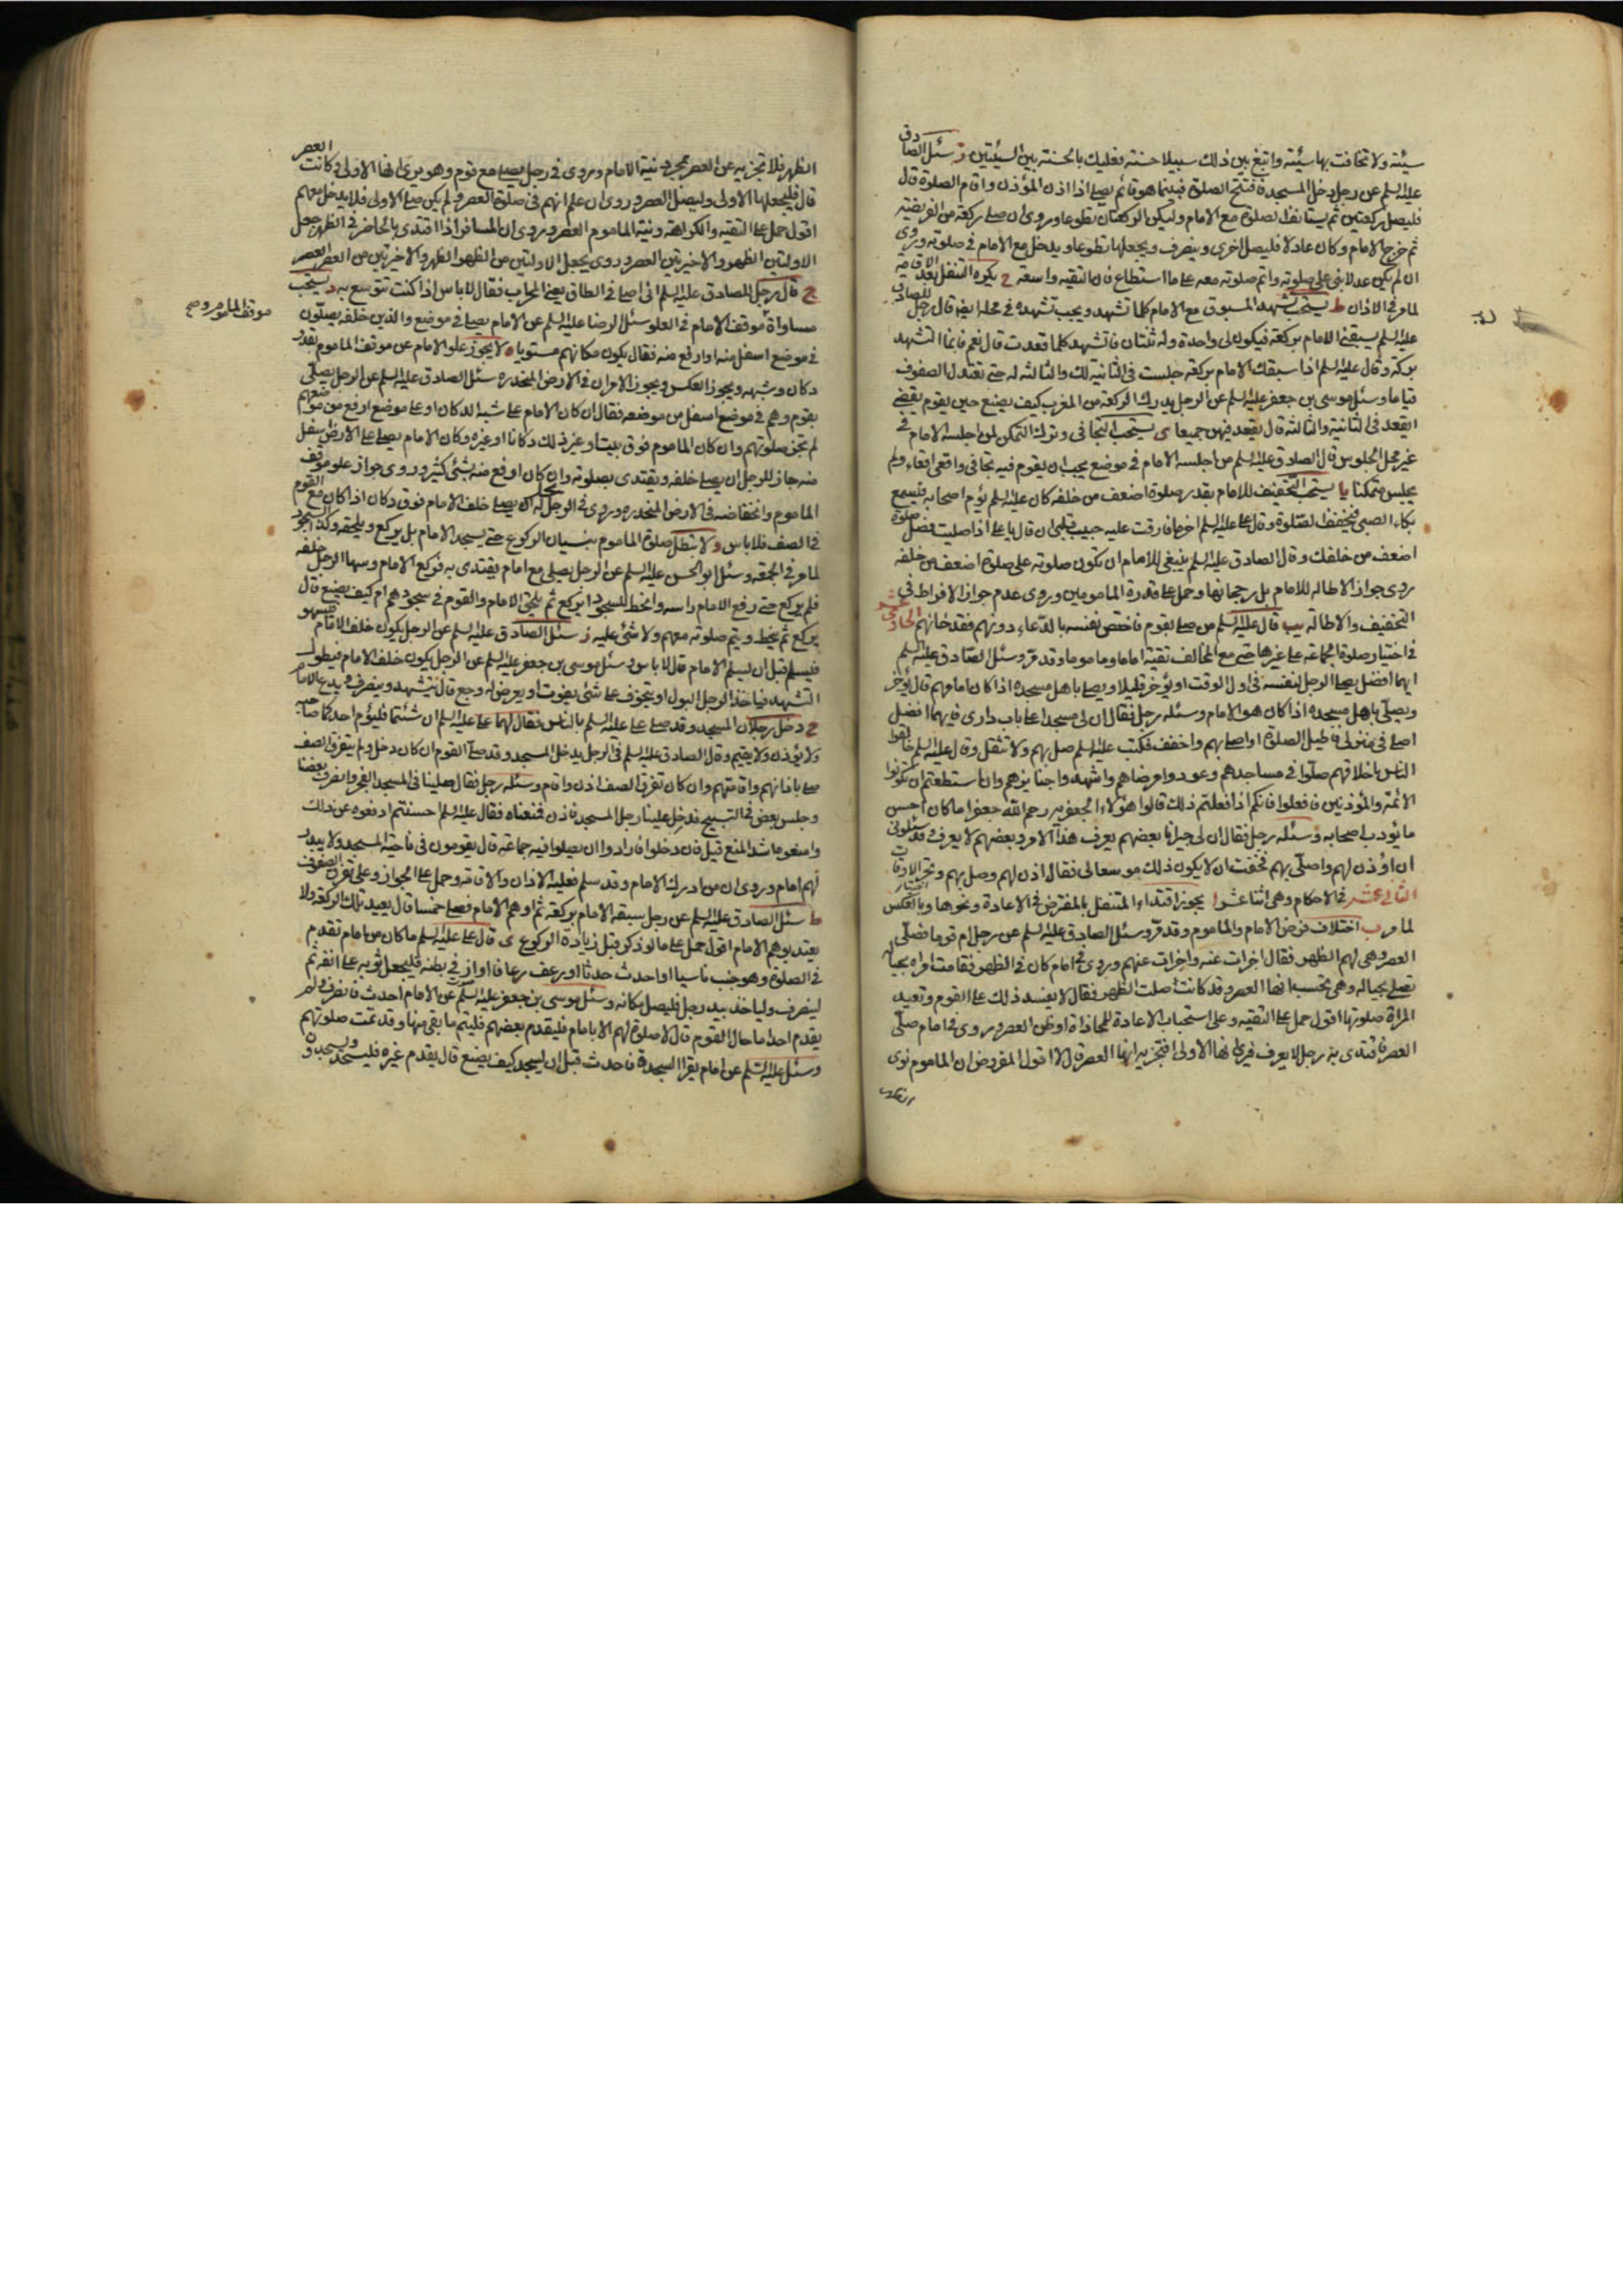 سيئة ولا تخافت بها سيئة وابتغ بين ذلك سبيلا حسنة فعليك بالحسنة بين السيئتين ز سئل الصادق
عليه السلم عن رجل دخل المسجد فافتتح الصلوة فبينما هو قائم يصلي اذا اذن المؤذن واقام الصلوة قال
فليصل ركعتين ثم يستانف الصلوة مع الامام وليكن الركعتان تطوعا وروى ان صلى ركعة من الفريضة
ثم خرج الامام وكان عادلا فليصل اخرى وينصرف ويجعلها تطوعا ويدخل مع الامام في صلوته وروى
ان لم يكن عدلا بنى على صلوته واتم صلوته معه على ما استطاع فان التقية واسعة ح يكره التنفل بعد الاقامة
لما مر في الاذان ط يستحب تشهد المسبوق مع الامام كلما تشهد ويجب تشهده في محله ايضا قال رجل للصادق
عليه السلم يسبقني الامام بركعة فيكون لي واحدة وله ثنتان فاتشهد كلما قعدت قال نعم فانما التشهد
بركة وقال عليه السلم اذا سبقك الامام بركعة جلست في الثانية لك والثالثة له حتى تعتدل الصفوف
قياما وسئل موسى بن جعفر عليه السلم عن الرجل يدرك الركعة من المغرب كيف يصنع حين يقوم يقضي
ايقعد في الثانية والثالثة قال يقعد فيهن جميعا ى يستحب التجافي وترك التمكن لمن اجلسه الامام في
غير محل الجلوس قال الصادق عليه السلم من اجلسه الامام في موضع يجب ان يقوم فيه تجافى واقعى اقعاء ولم
يجلس متمكنا يا يستحب التخفيف للامام بقدر صلوة اضعف من خلفه كان عليه السلم يؤم اصحابه فيسمع
بكاء الصبي فيخفف الصلوة وقال علي عليه السلم اخر ما فارقت عليه حبيب قلبي ان قال يا علي اذا صليت فصل صلوة
اضعف من خلفك وقال الصادق عليه السلم ينبغي للامام ان تكون صلوته على صلوة اضعف من خلفه
روى جواز الاطالة للامام بل رجحانها وحمل على قدرة المامومين وروى عدم جواز الافراط في
التخفيف والاطالة يب قال عليه السلم من صلى بقوم فاختص نفسه بالدعاء دونهم فقد خانهم الحادي عشر
في اختيار صلوة الجماعة على غيرها حتى مع المخالف تقية اماما وماموما وقد مر وسئل الصادق عليه السلم
ايهما افضل يصلي الرجل لنفسه في اول الوقت او يؤخر قليلا ويصلي باهل مسجده اذا كان امامهم قال يؤخر
ويصلي باهل مسجده اذا كان هو الامام وسئله رجل فقال ان لي مسجدا على باب داري فايهما افضل
اصلي في منزلي فاطيل الصلوة او اصلي بهم واخفف فكتب عليه السلم صل بهم ولا تثقل وقال عليه السلم خالقوا
الناس باخلاقهم صلوا في مساجدهم وعودوا مرضاهم واشهدوا جنايزهم وان استطعتم ان تكونوا
الائمة والمؤذنين فافعلوا فانكم اذا فعلتم ذلك قالوا هؤلاء الجعفرية رحم الله جعفرا ما كان احسن
ما يؤدب اصحابه وسئله رجل فقال ان لي جيرانا بعضهم يعرف هذا الامر وبعضهم لا يعرف وقد سئلوني
ان اؤذن لهم واصلي بهم فخفت ان لا يكون ذلك موسعا لي فقال اذن لهم وصل بهم وتحر الاوقات
الثاني عشر في الاحكام وهي اثنا عشر ا يجوز اقتداء المتنفل بالمفترض في الاعادة ونحوها وبالعكس
لما مر ب اختلاف فرض الامام والماموم وقد مر وسئل الصادق عليه السلم عن رجل ام قوما فصلى
العصر وهي لهم الظهر فقال اجزات عنه واجزات عنهم وروى في امام كان في الظهر فقامت امراة بحياله
تصلي بحياله وهي تحسب انها العصر وقد كانت صلت الظهر فقال لا يفسد ذلك على القوم وتعيد
المراة صلوتها اقول حمل على التقية وعلى استحباب الاعادة للمحاذاة او ظن العصر وروى في امام صلى
العصر فاقتدى به رجل لا يعرف فيرى انها الاولى افتجزيه انها العصر قال لا اقول المفروض ان الماموم نوى
الظهر
الظهر فلا تجزيه عن العصر بمجرد نية الامام وروى في رجل يصلي مع قوم وهو يرى انها الاولى وكانت العصر
قال فليجعلها الاولى وليصل العصر وروى ان علم انهم في صلوة العصر ولم يكن صلى الاولى فلا يدخل معهم
اقول حمل على التقية والكراهة ونية الماموم العصر وروى ان المسافر اذا اقتدى بالحاضر في الظهر جعل
الاولتين الظهر والاخيرتين العصر وروى يجعل الاولتين من الظهر الظهر والاخيرتين من العصر العصر
ج قال رجل للصادق عليه السلم اني اصلي في الطاق يعني المحراب فقال لا باس اذا كنت تتوسع به د يستحب
مساواة موقف الامام في العلو سئل الرضا عليه السلم عن الامام يصلي في موضع والذين خلفه يصلون
موقف الماموم
في موضع اسفل منه او ارفع منه فقال يكون مكانهم مستويا ه لا يجوز علو الامام عن موقف الماموم بقدر
دكان وشبهه ويجوز العكس ويجوز الامران في الارض المنحدرة سئل الصادق عليه السلم عن الرجل يصلي
بقوم وهم في موضع اسفل من موضعه فقال ان كان الامام على شبه الدكان او على موضع ارفع من موضعهم
لم تجز صلوتهم وان كان الماموم فوق بيت او غير ذلك دكانا او غيره وكان الامام يصلي على الارض اسفل
منه جاز للرجل ان يصلي خلفه ويقتدي بصلوته وان كان ارفع منه بشئ كثير وروى جواز علو موقف
الماموم وانخفاضه في الارض المنحدرة وروى في الرجل ان يصلي خلف الامام فوق دكان اذا كان مع القوم
في الصف فلا باس و لا تبطل صلوة الماموم بنسيان الركوع حتى يسجد الامام بل يركع ويلحقه وكذا السجود
لما مر في الجمعة وسئل ابو الحسن عليه السلم عن الرجل يصلي مع امام يقتدي به فركع الامام وسها الرجل خلفه
فلم يركع حتى رفع الامام راسه وانحط للسجود ايركع ثم يلحق الامام والقوم في سجودهم ام كيف يصنع قال
يركع ثم ينحط ويتم صلوته معهم ولا شئ عليه ز سئل الصادق عليه السلم عن الرجل يكون خلف الامام فيسهو
فيسلم قبل ان يسلم الامام قال لا باس وسئل موسى بن جعفر عليه السلم عن الرجل يكون خلف الامام فيطول
التشهد فياخذ الرجل البول او يتخوف على شئ يفوت او يعرض له وجع قال يتشهد وينصرف ويدع الامام
ح دخل رجلان المسجد وقد صلى علي عليه السلم بالناس فقال لهما علي عليه السلم ان شئتما فليؤم احدكما صاحبه
ولا يؤذن ولا يقيم وقال الصادق عليه السلم في الرجل يدخل المسجد وقد صلى القوم ان كان دخل ولم يتفرق الصف
صلى باذانهم واقامتهم وان كان تفرق الصف اذن واقام وسئله رجل فقال صلينا في المسجد الفجر وانصرف بعضنا
وجلس بعض في التسبيح فدخل علينا رجل المسجد فاذن فمنعناه فقال عليه السلم احسنتم ادفعوه عن ذلك
وامنعوه اشد المنع قيل فان دخلوا فارادوا ان يصلوا فيه جماعة قال يقومون في ناحية المسجد ولا يبدر
لهم امام وروى ان من ادرك الامام وقد سلم فعليه الاذان والاقامة وحمل على الجواز وعلى تفرق الصفوف
ط سئل الصادق عليه السلم عن رجل سبقه الامام بركعة ثم اوهم الامام فصلى خمسا قال يعيد تلك الركعة ولا
يعتد بوهم الامام اقول حمل على ما لو ذكر قبل زيادة الركوع ى قال علي عليه السلم ما كان من امام تقدم
في الصلوة وهو جنب ناسيا او احدث حدثا او رعف رعافا او از في بطنه فليجعل ثوبه على انفه ثم
لينصرف ولياخذ بيد رجل فليصل مكانه وسئل موسى بن جعفر عليه السلم عن الامام احدث فانصرف ولم
يقدم احدا ما حال القوم قال لا صلوة لهم الا بامام فليقدم بعضهم فليتم ما بقي منها وقد تمت صلوتهم
وسئل عليه السلم عن امام يقرا السجدة فاحدث قبل ان يسجد كيف يصنع قال يقدم غيره فيسجد ويسجدون